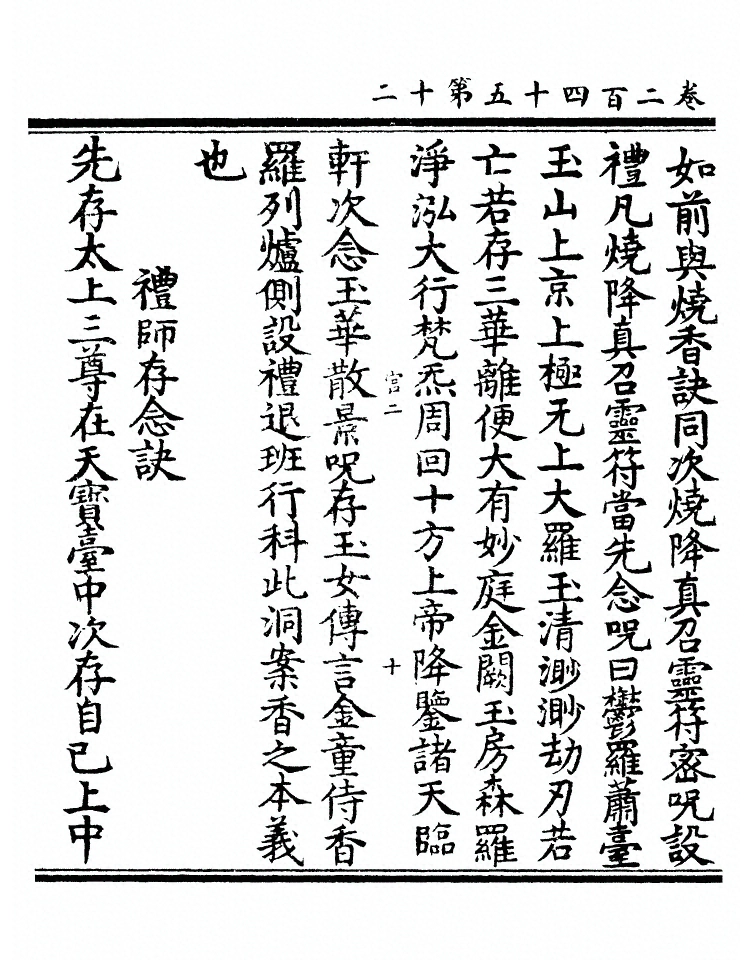 卷二百四十五第十二
如前與燒香訣同次燒降真召靈符密呪設
禮凡燒降真召靈符當先念呪曰鬱羅蕭臺
玉山上京上極无上大羅玉清渺渺劫刃若
亡若存三華離便大有妙庭金闕玉房森羅
淨泓大行梵炁周回十方上帝降鑒諸天臨
宫二 十
軒次念玉華散景呪存玉女傳言金童侍香
羅列爐側設禮退班行科此洞案香之本義
也
禮師存念訣
先存太上三尊在天寶臺中次存自已上中